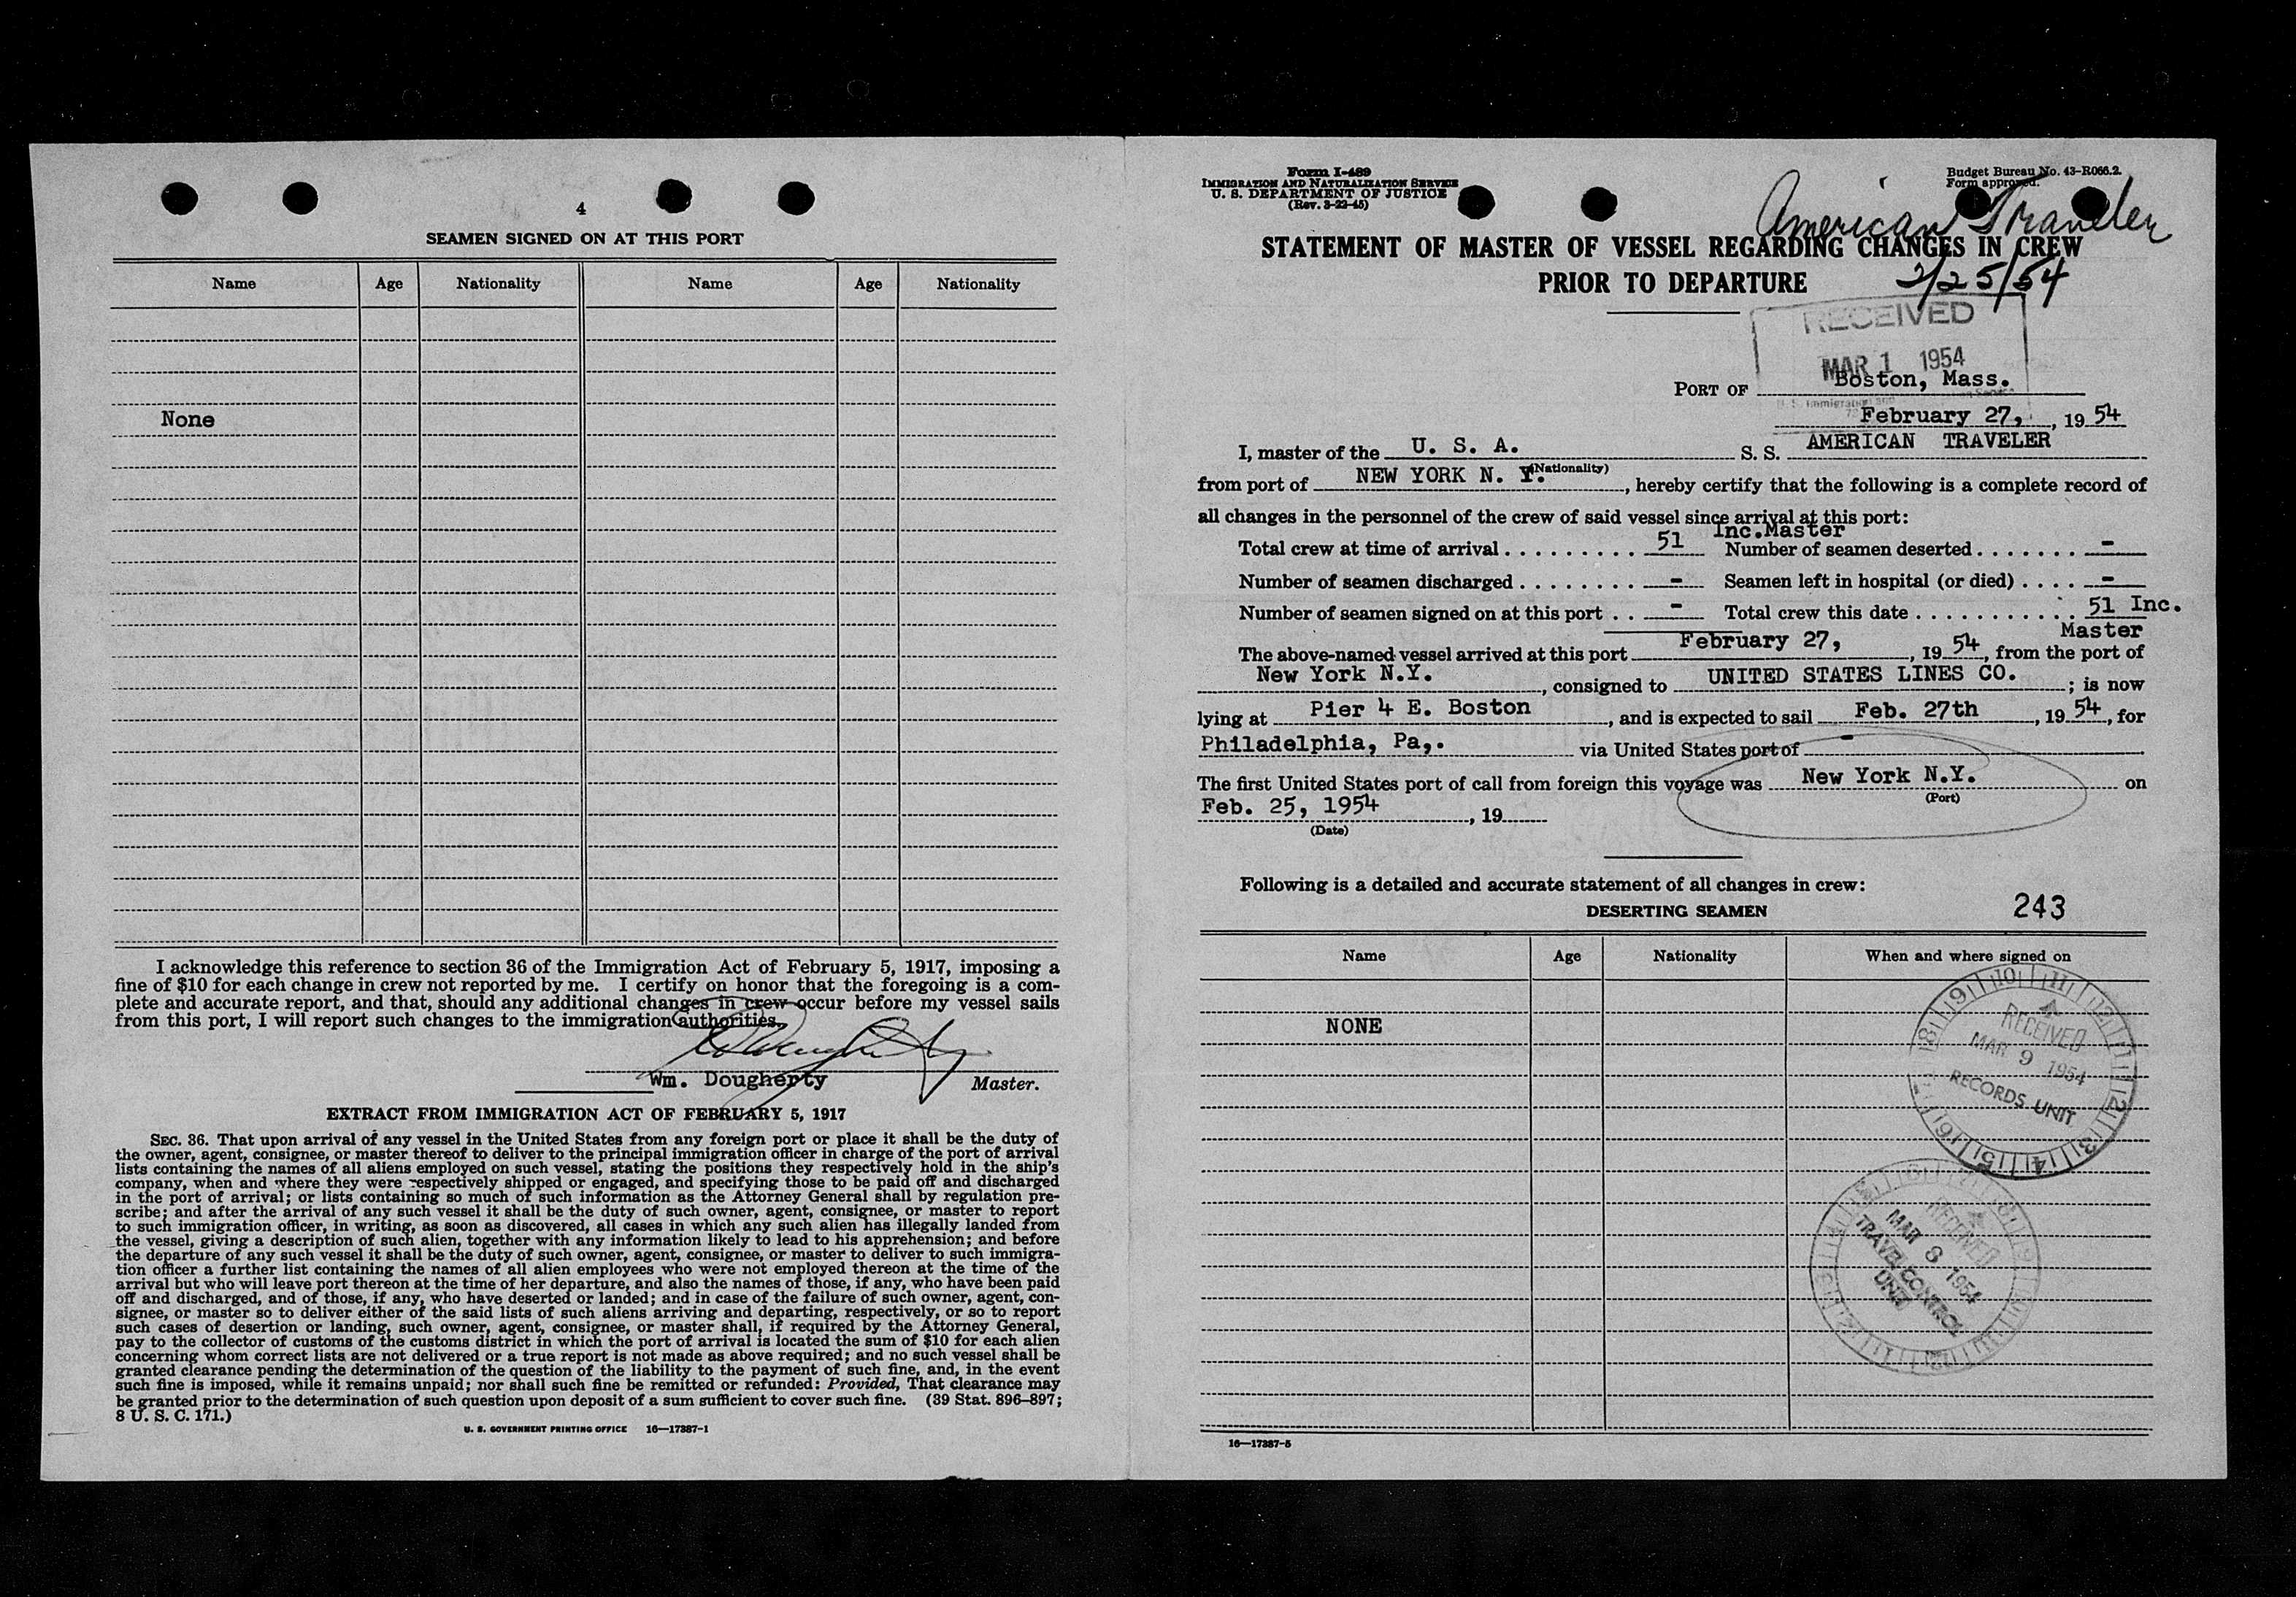 4
SEAMEN SIGNED ON AT THIS PORT
Name Age Nationality Name Age Nationality
None
I acknowledge this reference to section 36 of the Immigration Act of February 5, 1917, imposing a
fine of $10 for each change in crew not reported by me. I certify on honor that the foregoing is a com-
plete and accurate report, and that, should any additional changes in crew occur before my vessel sails
from this port, I will report such changes to the immigration authorities.
Wm. Dougherty Master.
EXTRACT FROM IMMIGRATION ACT OF FEBRUARY 5, 1917
SEC. 36. That upon arrival of any vessel in the United States from any foreign port or place it shall be the duty of
the owner, agent, consignee, or master thereof to deliver to the principal immigration officer in charge of the port of arrival
lists containing the names of all aliens employed on such vessel, stating the positions they respectively hold in the ship's
company, when and where they were respectively shipped or engaged, and specifying those to be paid off and discharged
in the port of arrival; or lists containing so much of such information as the Attorney General shall by regulation pre-
scribe; and after the arrival of any such vessel it shall be the duty of such owner, agent, consignee, or master to report
to such immigration officer, in writing, as soon as discovered, all cases in which any such alien has illegally landed from
the vessel, giving a description of such alien, together with any information likely to lead to his apprehension; and before
the departure of any such vessel it shall be the duty of such owner, agent, consignee, or master to deliver to such immigra-
tion officer a further list containing the names of all alien employees who were not employed thereon at the time of the
arrival but who will leave port thereon at the time of her departure, and also the names of those, if any, who have been paid
off and discharged, and of those, if any, who have deserted or landed; and in case of the failure of such owner, agent, con-
signee, or master so to deliver either of the said lists of such aliens arriving and departing, respectively, or so to report
such cases of desertion or landing, such owner, agent, consignee, or master shall, if required by the Attorney General,
pay to the collector of customs of the customs district in which the port of arrival is located the sum of $10 for each alien
concerning whom correct lists are not delivered or a true report is not made as above required; and no such vessel shall be
granted clearance pending the determination of the question of the liability to the payment of such fine, and, in the event
such fine is imposed, while it remains unpaid; nor shall such fine be remitted or refunded: Provided, That clearance may
be granted prior to the determination of such question upon deposit of a sum sufficient to cover such fine. (39 Stat. 896–897;
8 U. S. C. 171.)
U. S. GOVERNMENT PRINTING OFFICE 16—17387-1
Form I-489
IMMIGRATION AND NATURALIZATION SERVICE
U. S. DEPARTMENT OF JUSTICE
(Rev. 3-22-45)
Budget Bureau No. 43-R066.2.
Form approved.
American Traveler
STATEMENT OF MASTER OF VESSEL REGARDING CHANGES IN CREW
PRIOR TO DEPARTURE
2/25/54
RECEIVED
MAR 1 1954
PORT OF Boston, Mass.
February 27, , 19 54
I, master of the U. S. A. S. S. AMERICAN TRAVELER
(Nationality)
from port of NEW YORK N. Y. , hereby certify that the following is a complete record of
all changes in the personnel of the crew of said vessel since arrival at this port:
Total crew at time of arrival . . . . . . . . . . 51 Inc.Master Number of seamen deserted . . . . . . . -
Number of seamen discharged . . . . . . . . - Seamen left in hospital (or died) . . . . -
Number of seamen signed on at this port . . - Total crew this date . . . . . . . . . . . . 51 Inc.
Master
The above-named vessel arrived at this port February 27, , 19 54, from the port of
New York N.Y. , consigned to UNITED STATES LINES CO. ; is now
lying at Pier 4 E. Boston , and is expected to sail Feb. 27th , 19 54, for
Philadelphia, Pa,. via United States port of -
The first United States port of call from foreign this voyage was New York N.Y. on
(Port)
Feb. 25, 1954 , 19
(Date)
Following is a detailed and accurate statement of all changes in crew:
DESERTING SEAMEN
243
Name Age Nationality When and where signed on
NONE
RECEIVED
MAR 9 1954
RECORDS UNIT
RECEIVED
MAR 8 1954
TRAVEL CONTROL
UNIT
16—17387-5